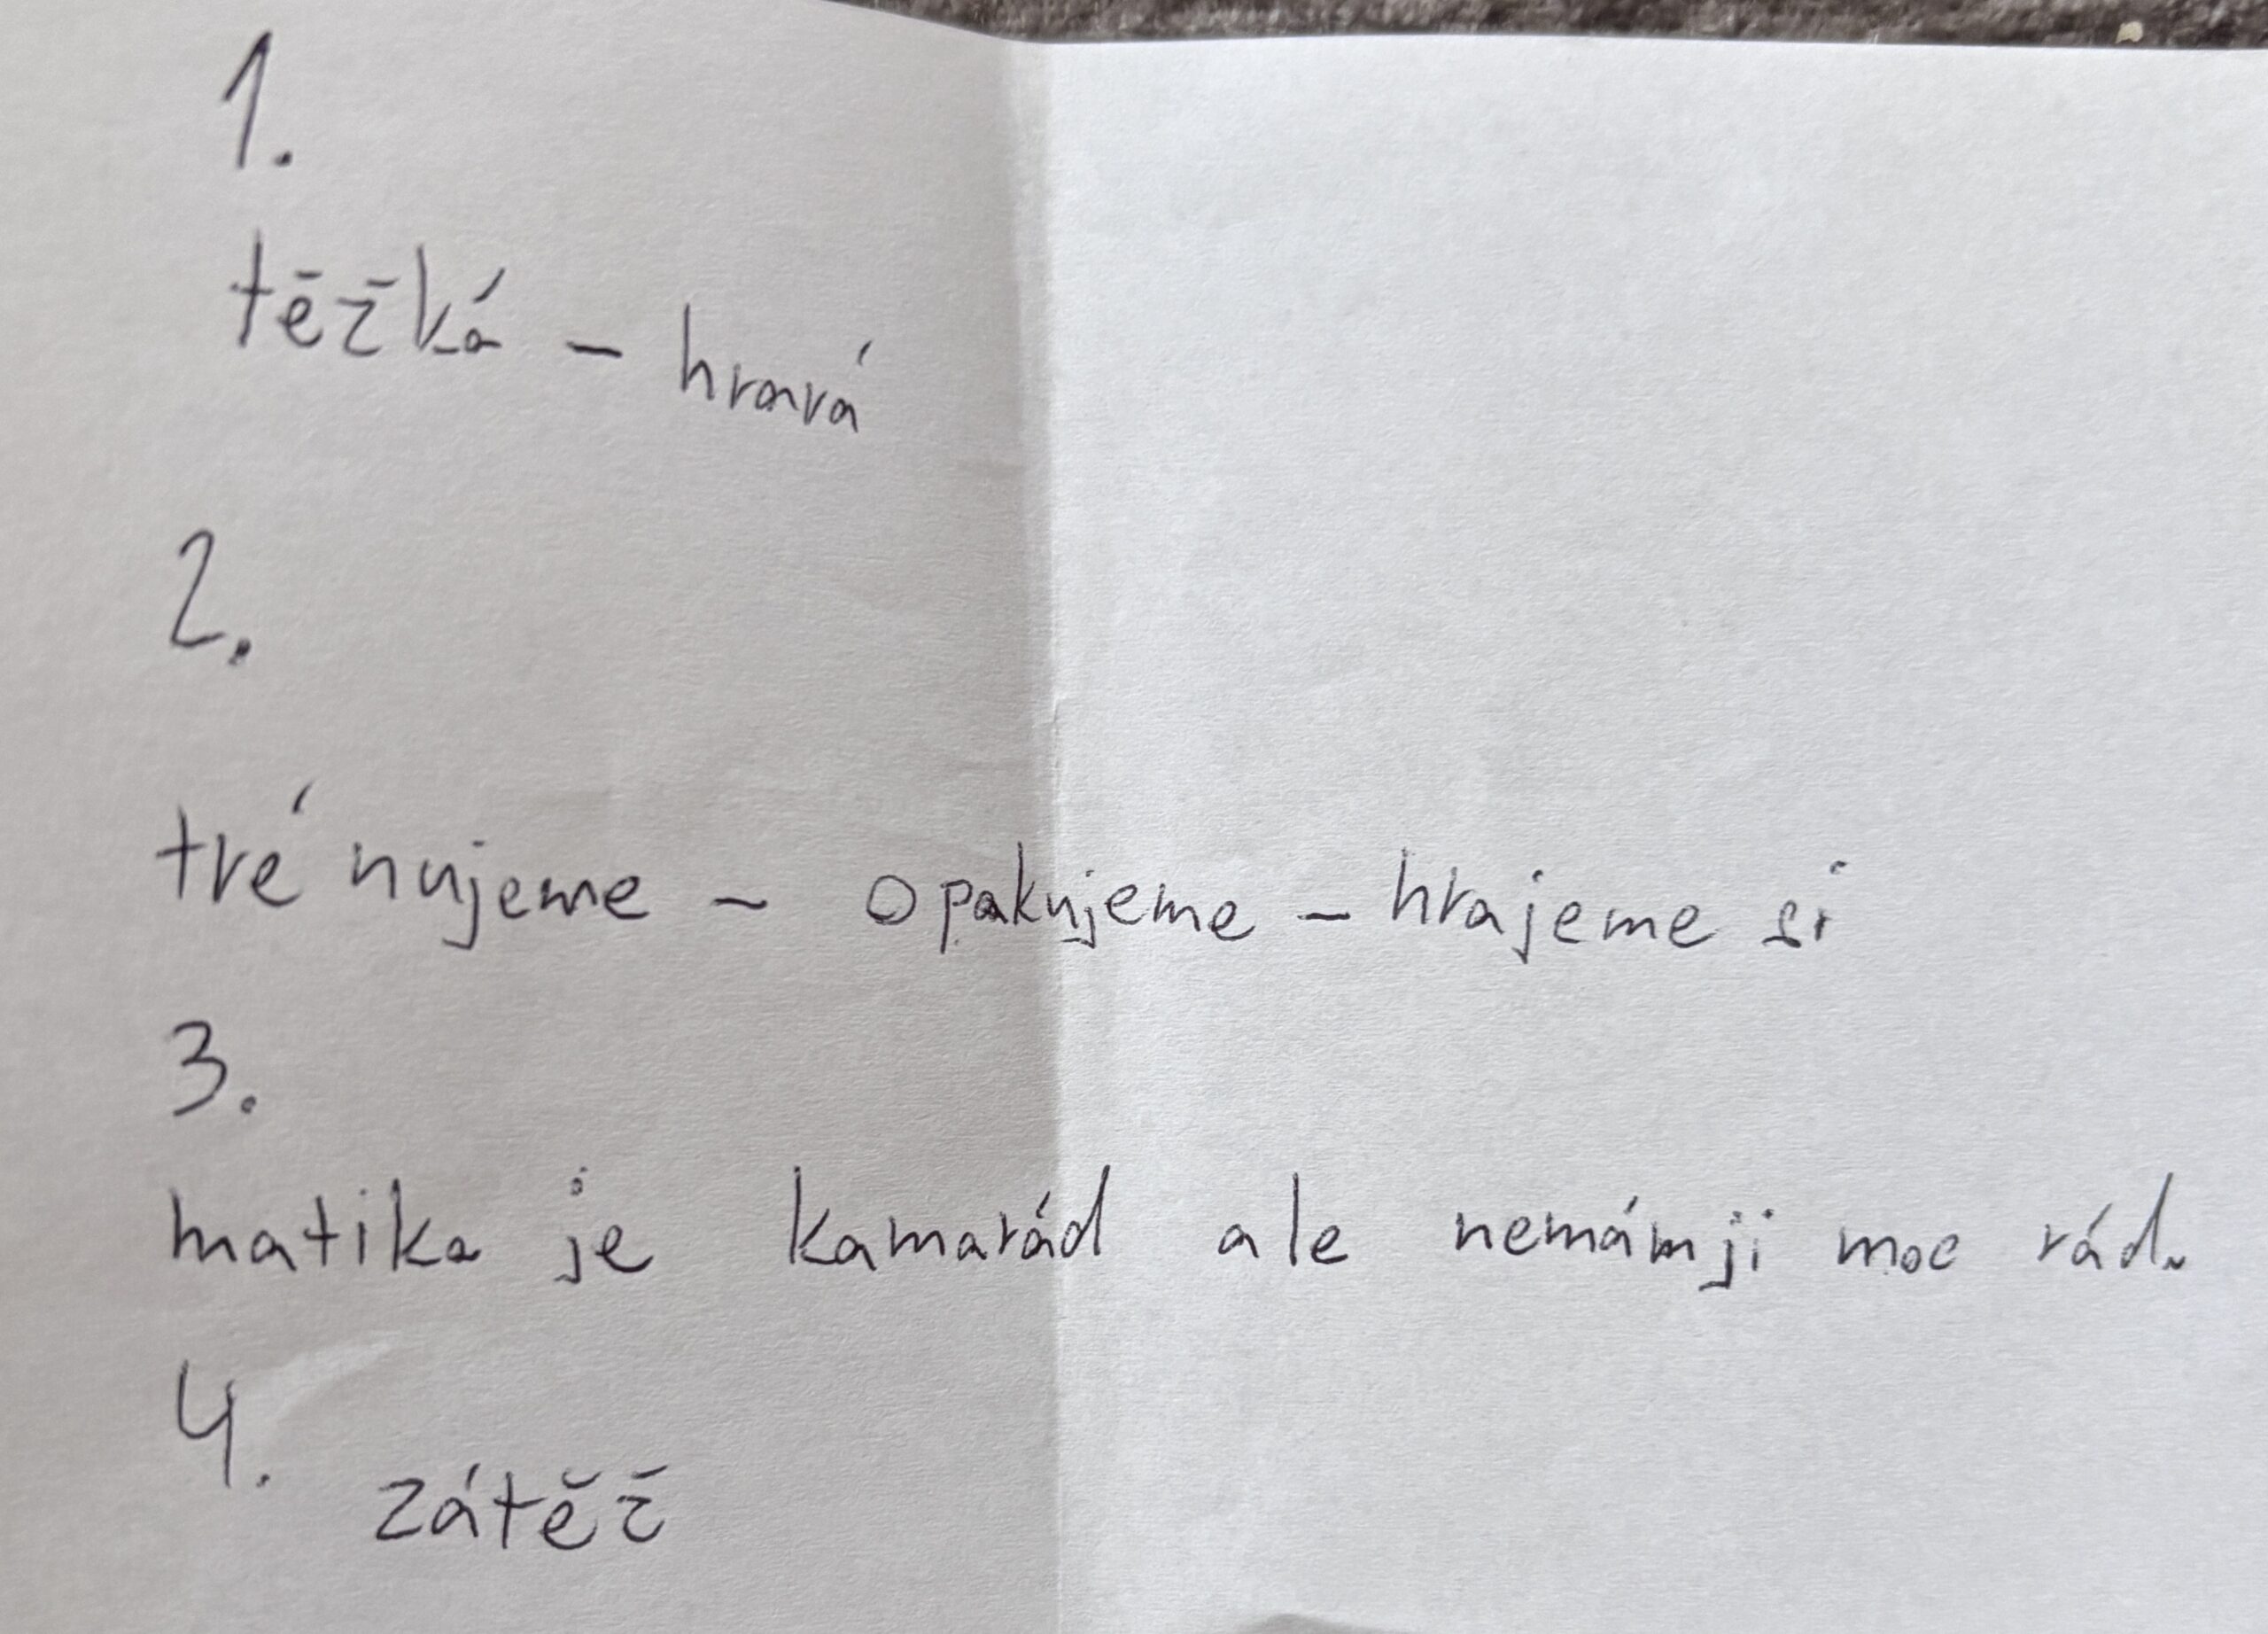 1.
těžká - hravá
2.
trénujeme - opakujeme - hrajeme si
3.
matika je kamarád ale nemámji moc rád.
4.
zátěž